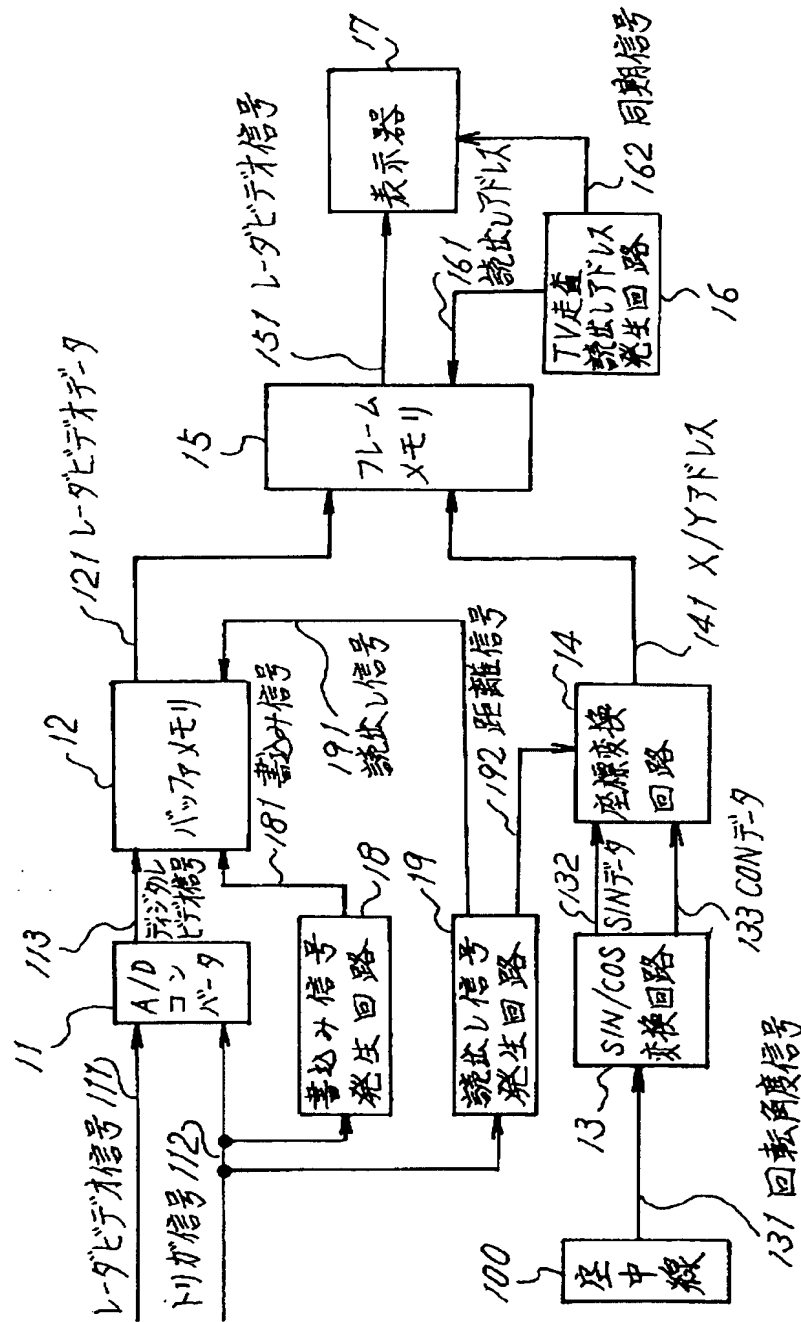 レーダビデオ信号 111
トリガ信号 112
11
A/D
コン
バータ
113
ディジタルレ
ビデオ信号
12
バッファメモリ
121 レーダビデオデータ
181 書込み信号
18
書込み信号
発生回路
191
読出し信号
19
読出し信号
発生回路
192 距離信号
100
空中線
131 回転角度信号
13
SIN/COS
変換回路
132
SINデータ
133 CONデータ
14
座標変換
回路
141 X/Yアドレス
15
フレーム
メモリ
151 レーダビデオ信号
161
読出しアドレス
16
TV走査
読出しアドレス
発生回路
162 同期信号
17
表示器